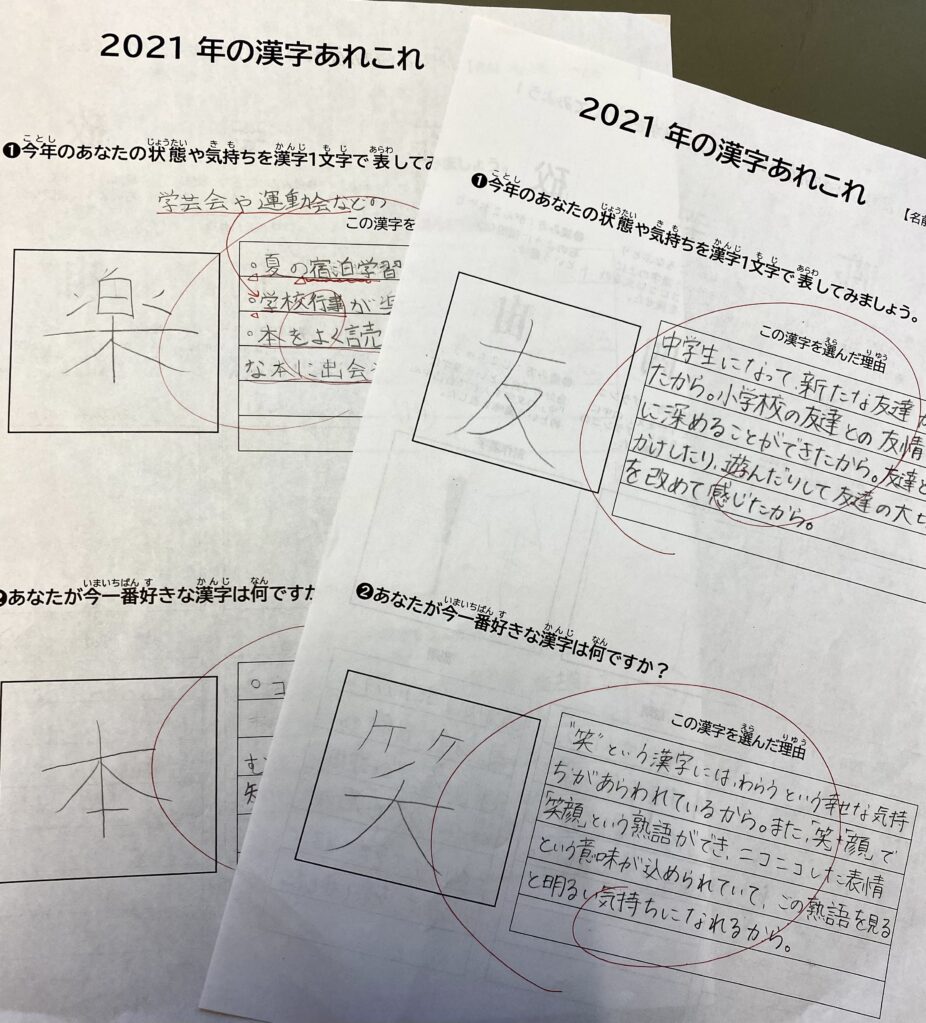 2021 年の漢字あれこれ
❶今年のあなたの状態や気持ちを漢字1文字で表してみ
ことし じょうたい き も かんじ もじ あらわ
学芸会や運動会などの
この漢字を
楽
。夏の宿泊学習
。学校行事が
・本をよく読
な本に出会
あなたが今一番好きな漢字は何ですか
いまいちばん す かんじ なん
本
2021 年の漢字あれこれ
【名前
❶今年のあなたの状態や気持ちを漢字1文字で表してみましょう。
ことし じょうたい き も かんじ もじ あらわ
この漢字を選んだ理由
えら りゆう
友
中学生になって、新たな友達が
たから。小学校の友達との友情
に深めることができたから。友達と
かけしたり、遊んだりして友達の大切
を改めて感じたから。
❷あなたが今一番好きな漢字は何ですか？
いまいちばん す かんじ なん
この漢字を選んだ理由
えら りゆう
笑
"笑"という漢字には、わらうという幸せな気持
ちがあらわれているから。また、「笑」+「顔」で
「笑顔」という熟語ができ、ニコニコした表情
という意味が込められていて、この熟語を見る
と明るい気持ちになれるから。